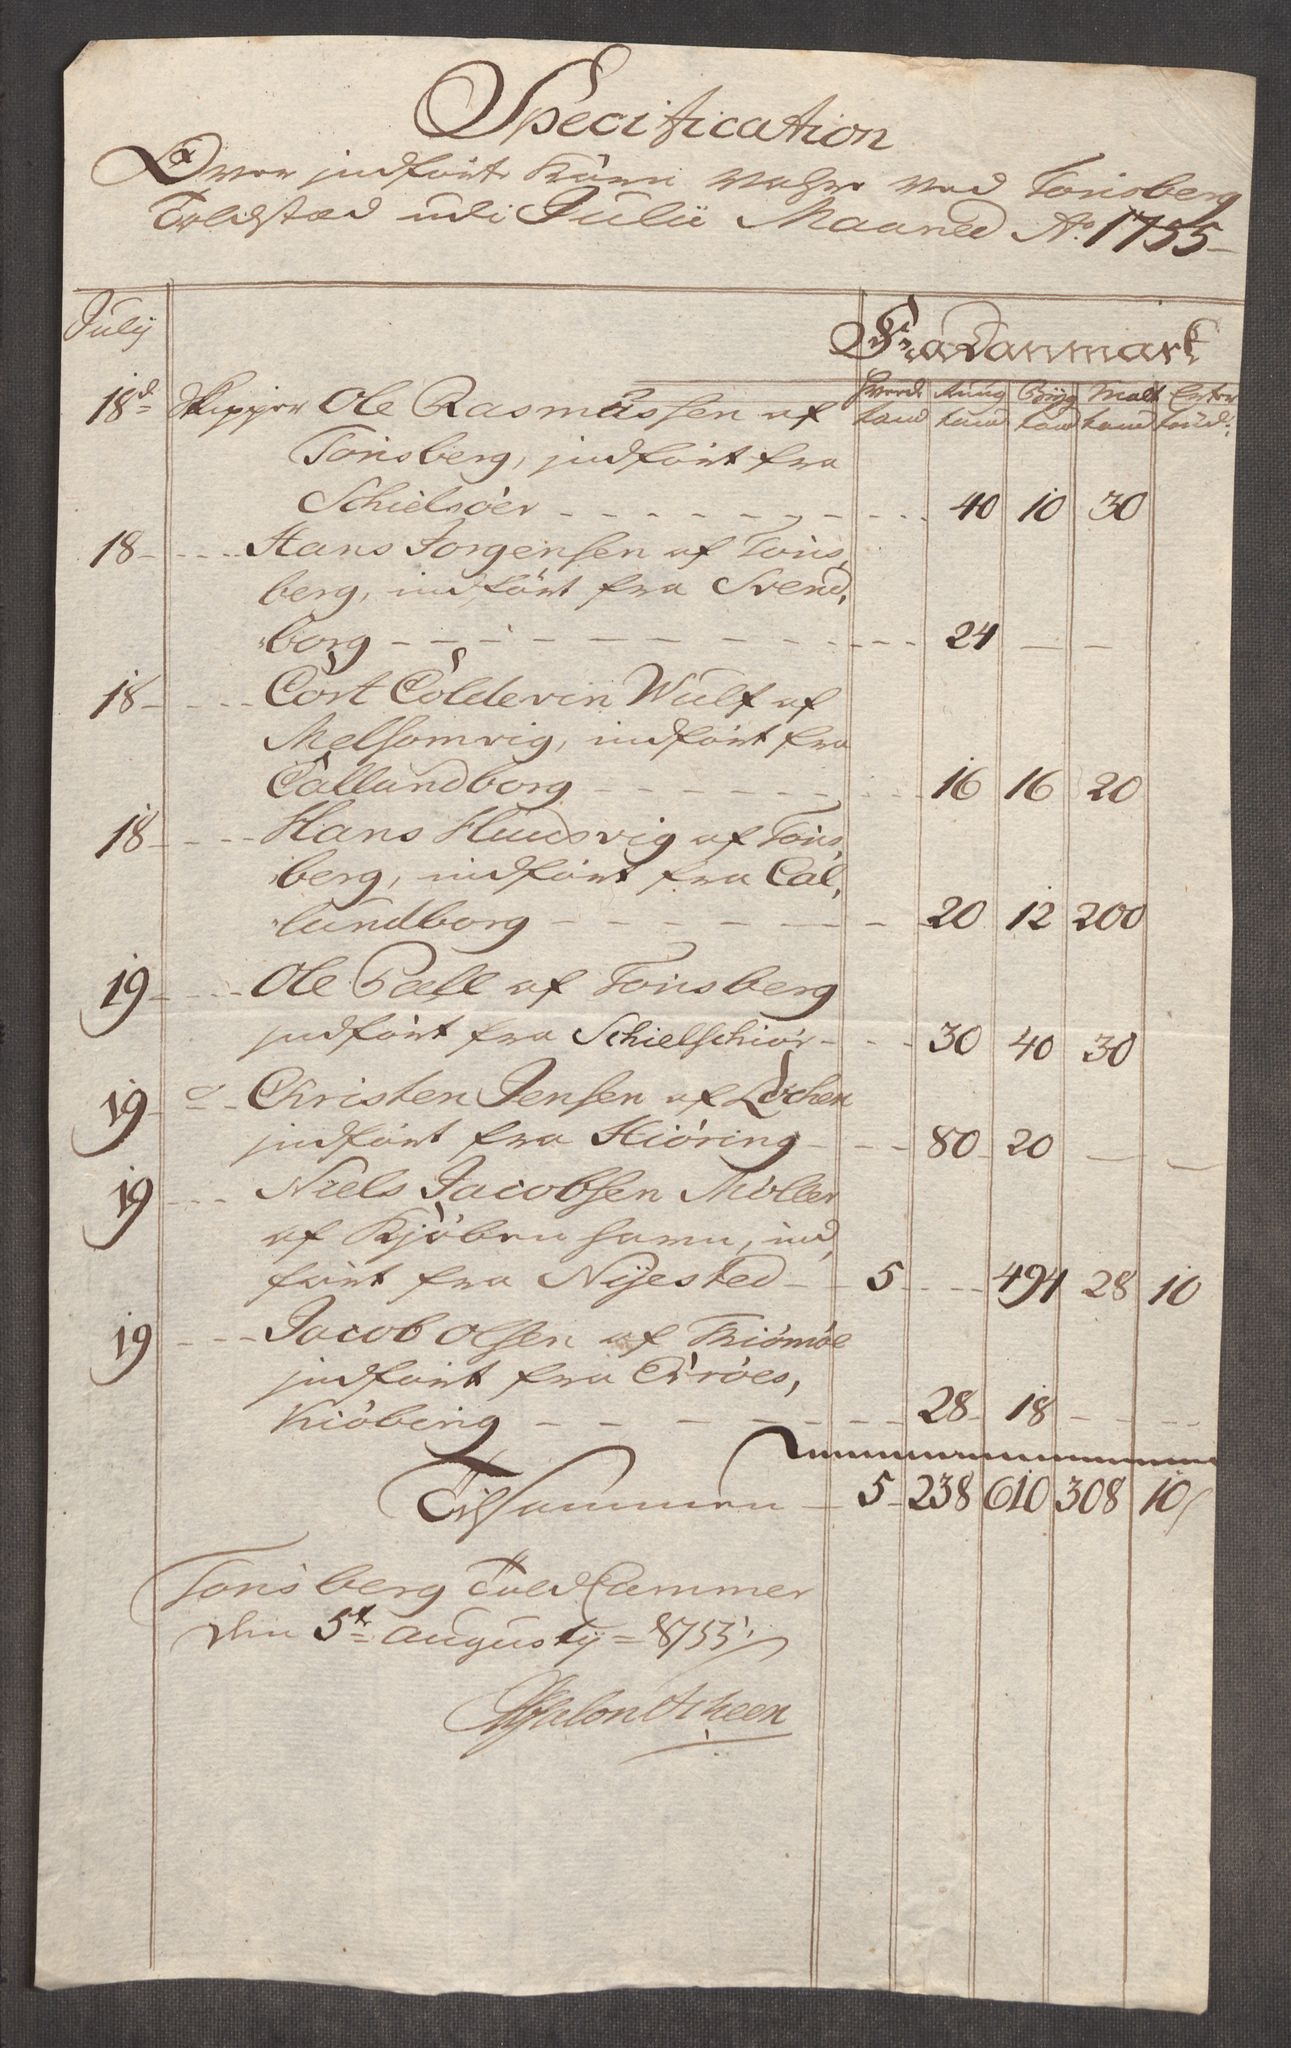 Specification
Over indførte Korn Vahre Ved Tonsberg
Toldstæd udi Julii Maaned Ao. 1755
July
Fra Danmark
Hvede Rug Bÿg Malt Erter
tønd tønd tønd tønd tønd:
18d Skipper Ole Rasmussen af
Tonsberg, indført fra
Schielsöer 40 10 30
18 Hans Jorgensen af Tons,
berg, indført fra Svend,
borg 24
18 Cort Coldevin Wulf af
Melsomvig, indført fra
Callundborg 16 16 20
18 Hans Huusvig af Tons,
berg, indført fra Cal,
lundborg 20 12 200
19 Ole Pall af Tonsberg
indført fra Schielschiör 30 40 30
19 Christen Jensen af Löchen
indført fra Hiöring 80 20
19 Niels Jacobsen Möller
af Kjøbenhavn, ind,
ført fra Nÿested 5 494 28 10
19 Jacob Olsen af Thiömöe
indført fra Erröes,
kiöbing 28 18
Tilsammen 5 238 610 308 10
Tonsberg Told Cammer
den 5te Augustÿ 1755